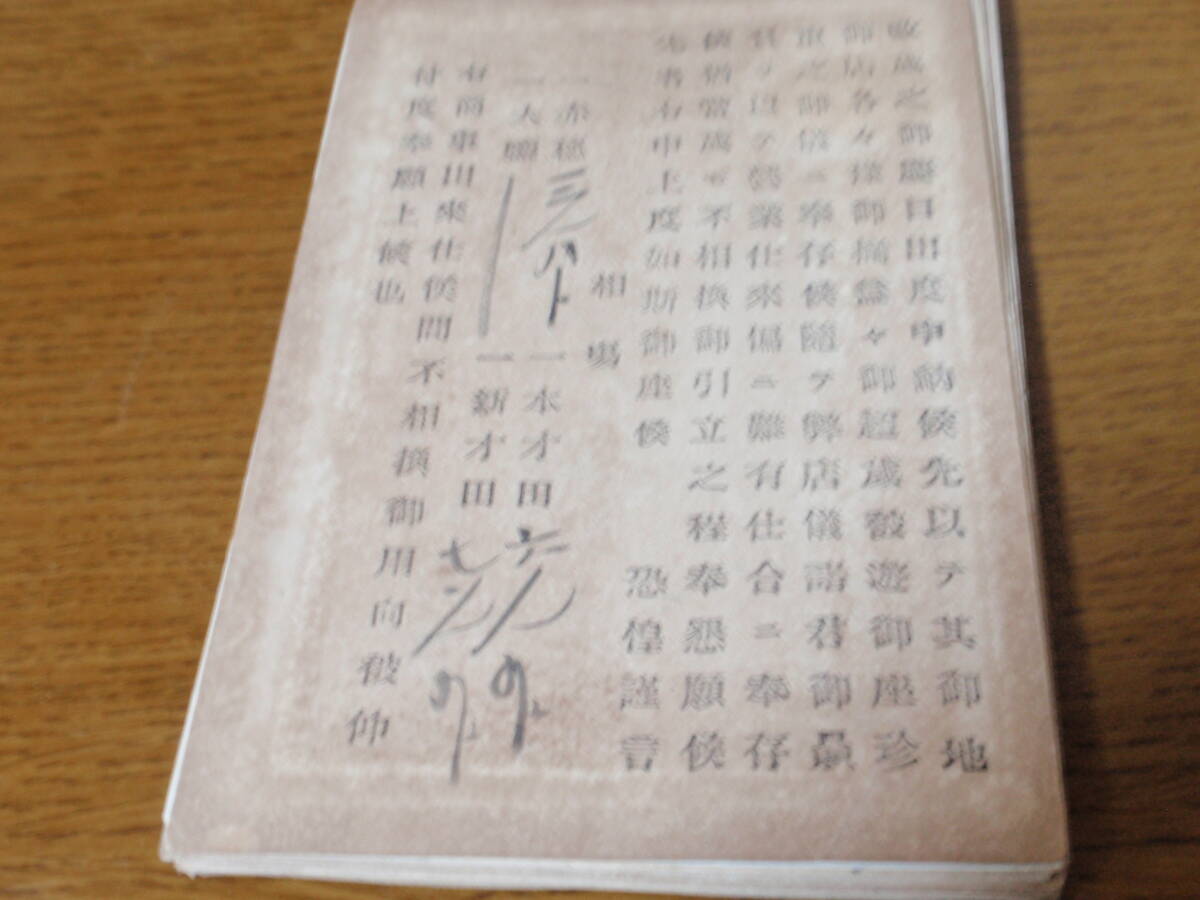 改歳之御慶目出度申納候先以テ其御地
御店各々様御揃益々御超歳被遊御座珍
重之御儀ニ奉存候随テ弊店儀諸君御贔
負ヲ以テ営業仕來偏ニ難有仕合ニ奉存
候猶當歳モ不相換御引立之程奉懇願候
先者右申上度如斯御座候 恐惶謹言
相場
一赤穂 一本才田
一大 一新才田
右商事出來仕候間不相換御用向被仰
付度奉願上候也